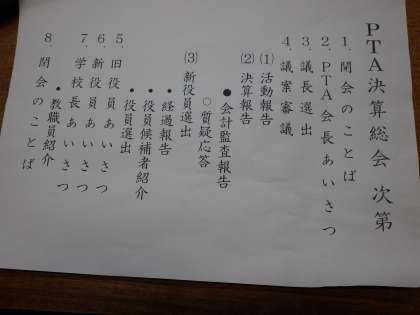 PTA決算総会 次第
1.開会のことば
2.PTA会長あいさつ
3.議長選出
4.議案審議
(1)活動報告
(2)決算報告
●会計監査報告
○質疑応答
(3)新役員選出
•経過報告
•役員候補者紹介
•役員選出
5.旧役員あいさつ
6.新役員あいさつ
7.学校長あいさつ
•教職員紹介
8.閉会のことば